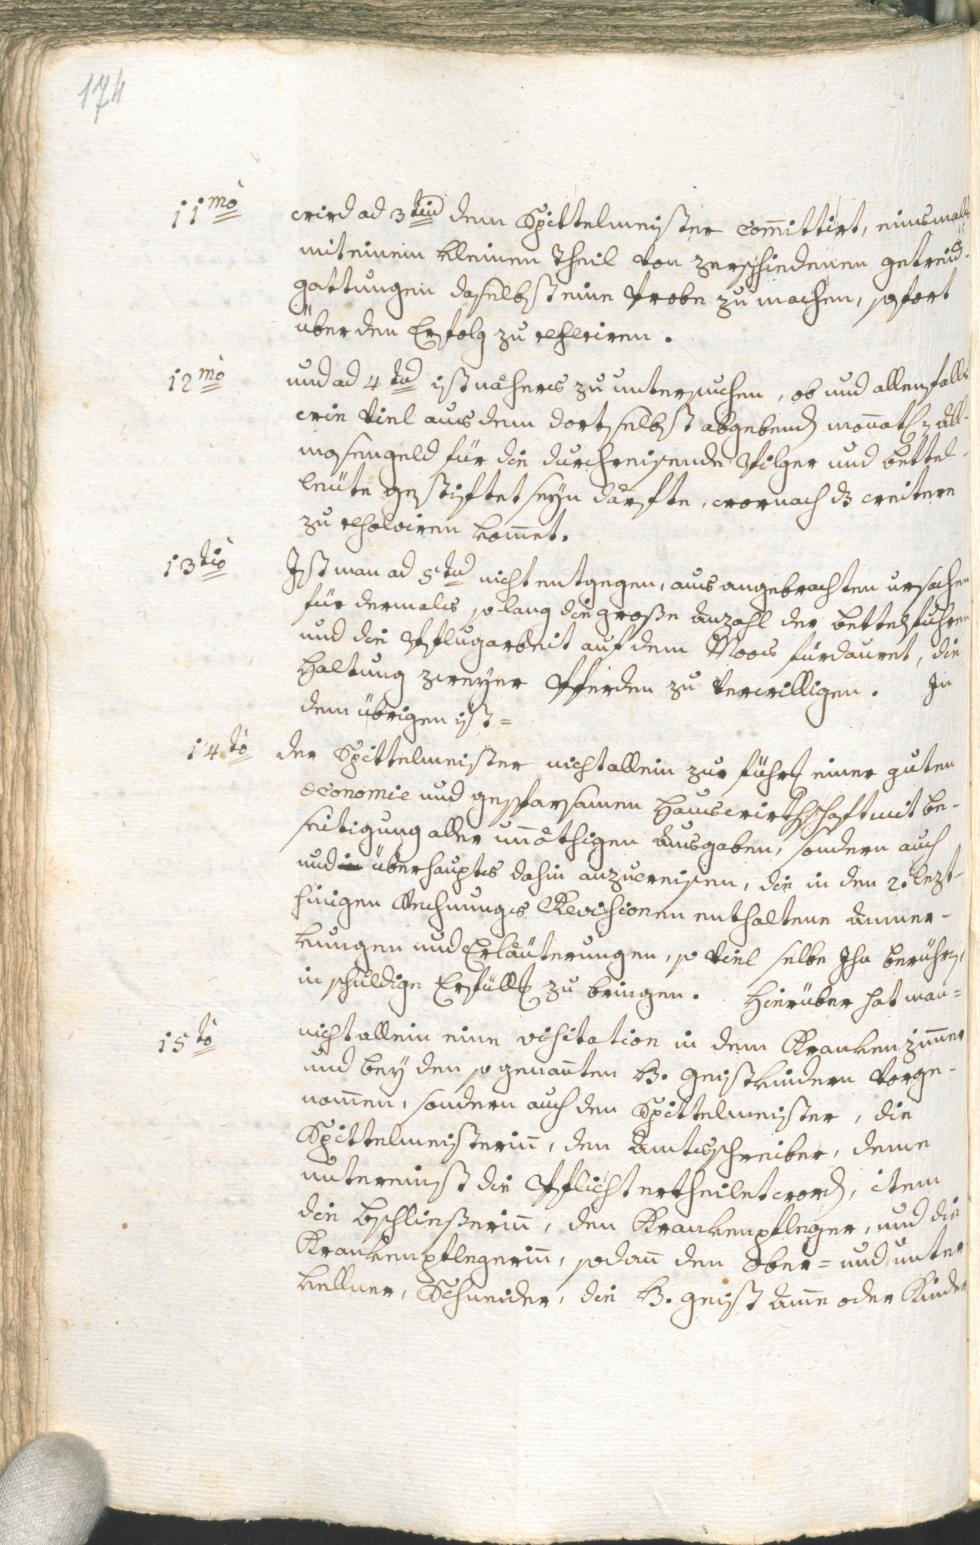 174
11mo wird ad 3tium dem Spittelmeister com̅ittirt, einsmalls
mit einem kleinen Theil von zerschiedenen getreid-
gattungen daselbst eine Probe zu machen, sofort
über den Erfolg zu referiren.
12mo und ad 4tum ist näheres zu untersuchen, ob und allenfalls
wie viel aus dem dortselbst abgebend mon̅athl. all-
mosengeld für die durchreisende Pilger und bettel-
leüte gestiftet seyn därfte, wornach dz weitere
zu resolviren kom̅et.
13tio Ist man ad 5tum nicht entgegen, aus angebrachten ursachen
für dermales so lang die große Anzahl der bettelfuhren
und die Pflugarbeit auf dem Moos fürdauret, die
Haltung zweyer Pferden zu verwilligen. In
dem übrigen ist=
14to der Spittelmeister nicht allein zur führg einer guten
economie und gesparsamen Hauswirthschaft mit be-
seitigung aller un̅öthigen Ausgaben, sondern auch
und überhaupts dahin anzuweisen, die in den 2. lezt-
hinigen Rechnungs Revisionen enthaltene Anmer-
kungen und Erläuterungen, so viel selbe Ihn berührn,
in schuldige Erfüllg zu bringen. Hierüber hat man=
15to nicht allein eine visitation in dem Krankenzim̅er
und bey den so genan̅ten H. geistkindern vorge-
nom̅en, sondern auch den Spittelmeister, die
Spittelmeisterin̅, den Amtsschreiber, deme
untereinst die Pflicht ertheilet word, item
die bschließerin̅, den Krankenpfleger, und die
Krankenpflegerin̅, sodan̅ den Ober= und unter
kellner, Schneider, die H. geist Am̅e oder Kinder